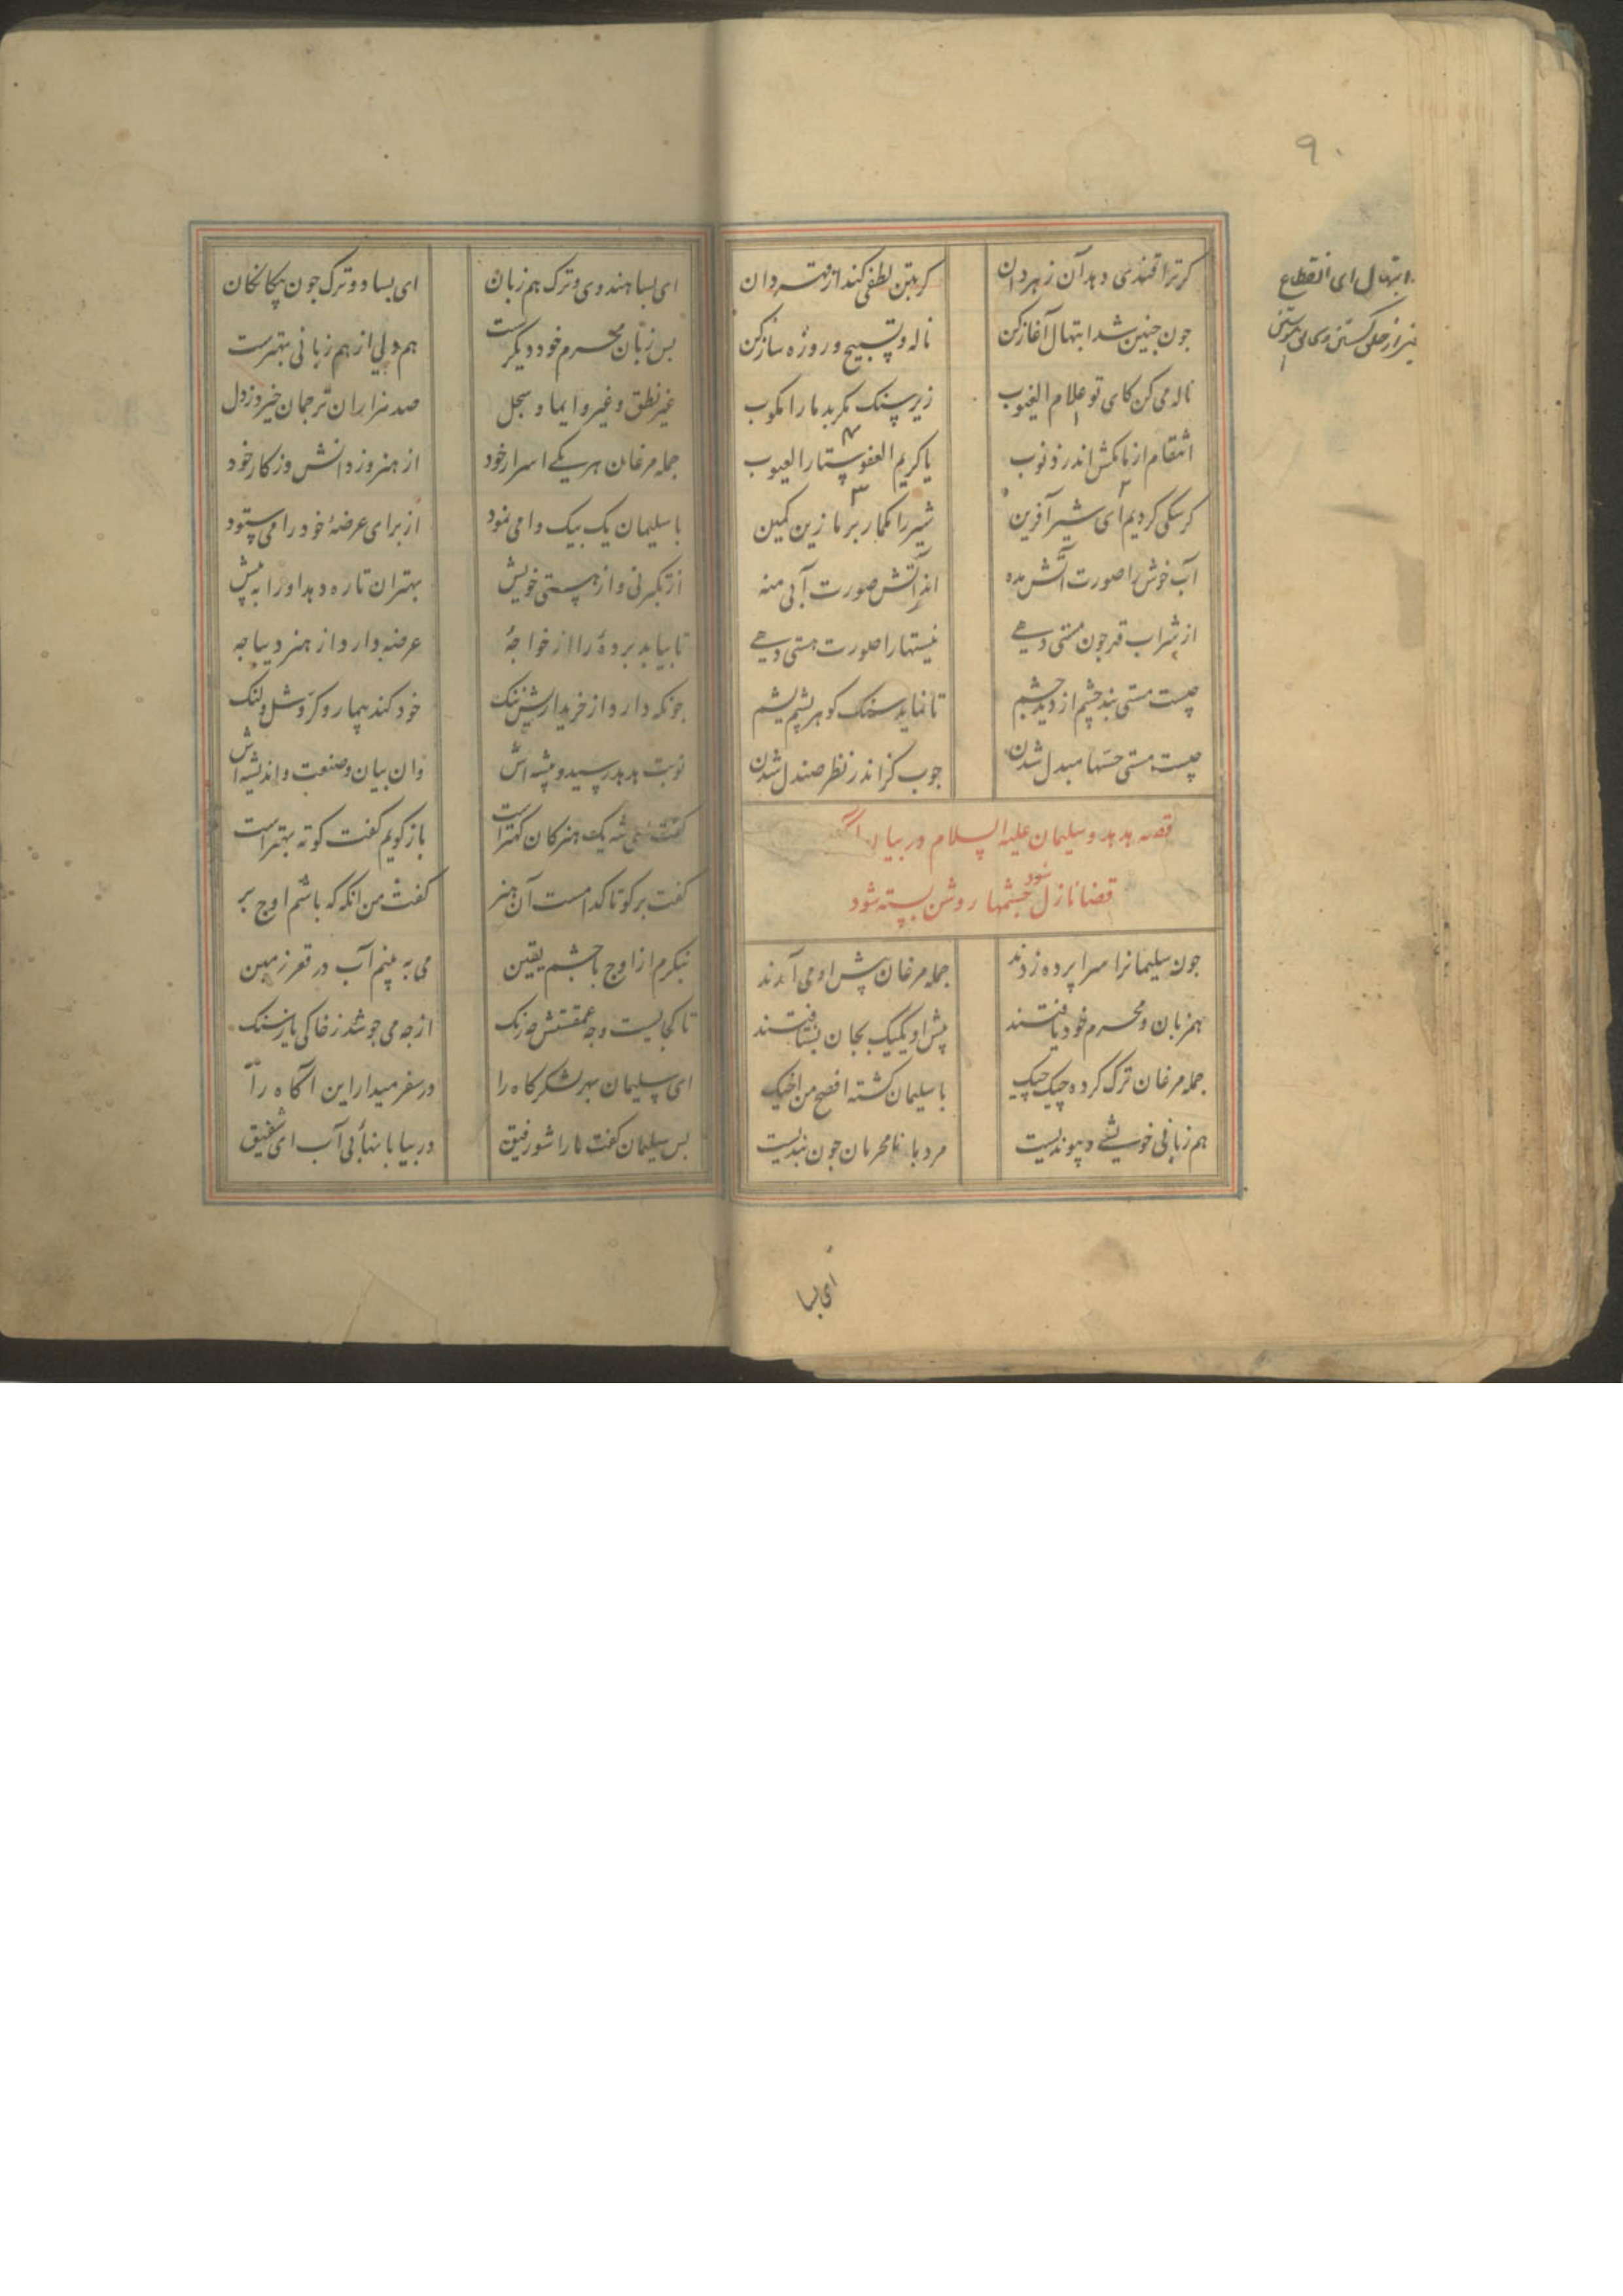 ۹۰
ابتهال ای انقطاع
کر ترا قندی دهد آن زهر دان    کر بتن لطفی کند از قهر دان
جون جنین شد ابتهال آغاز کن    ناله و تسبیح و روزه ساز کن
ناله می کن کای تو علام الغیوب    زیر سنک مکر بد ما را مکوب
انتقام از ما مکش اندر ذنوب    یا کریم العفو ستار العیوب
کر سکی کردیم ای شیر آفرین    شیر را مکمار بر ما زین کمین
آب خوش را صورت آتش مده    اندر آتش صورت آبی منه
از شراب قهر جون مستی دهی    نیستها را صورت هستی دهی
جیست مستی بند جشم از دید جشم    تا نماید سنک کوهر پشم یشم
جیست مستی حسها مبدل شدن    جوب کز اندر نظر صندل شدن
قصه هدهد و سلیمان علیه السلام در بیان انکه
قضا نازل شود جشمها روشن بسته شود
جون سلیمانرا سرا پرده زدند    جمله مرغان پیش او می آمدند
همزبان و محرم خود یافتند    پیش او یکیک بجان بشتافتند
جمله مرغان ترک کرده جیک جیک    با سلیمان کشته افصح من اخیک
هم زبانی خویشی و پیوندیست    مرد با نامحرمان جون بندیست
ای بسا
ای بسا هندوی و ترک هم زبان    ای بسا دو ترک جون بیکانکان
بس زبان محرم خود دیکرست    هم دلی از هم زبانی بهترست
غیر نطق و غیر و ایما و سجل    صد هزاران ترجمان خیزد ز دل
جمله مرغان هر یکی اسرار خود    از هنر وز دانش وز کار خود
با سلیمان یک بیک وا می نمود    از برای عرضهٔ خود را می ستود
از تکبر نی و از هستی خویش    بهر ان تا ره دهد او را به پیش
تا بیاید بردهٔ را از خواجهٔ    عرضه دارد از هنر دیباجه
جونکه دارد از خریداریش ننک    خود کند بیمار و کر و شل و لنک
نوبت هدهد رسید و پیشه اش    وان بیان و صنعت و اندیشه اش
کفت ای شه یک هنر کان کهتر است    باز کویم کفت کوته بهتر است
کفت بر کو تا کدامست آن هنر    کفت من انکه که باشم اوج بر
بنکرم از اوج با جشم یقین    می به بینم آب در قعر زمین
تا کجایست و جه عمقستش جه رنک    از جه می جوشد ز خاکی یا ز سنک
ای سلیمان بهر لشکر کاه را    در سفر میدار این آکاه را
بس سلیمان کفت ما را شو رفیق    در بیابانهای بی آب ای شفیق